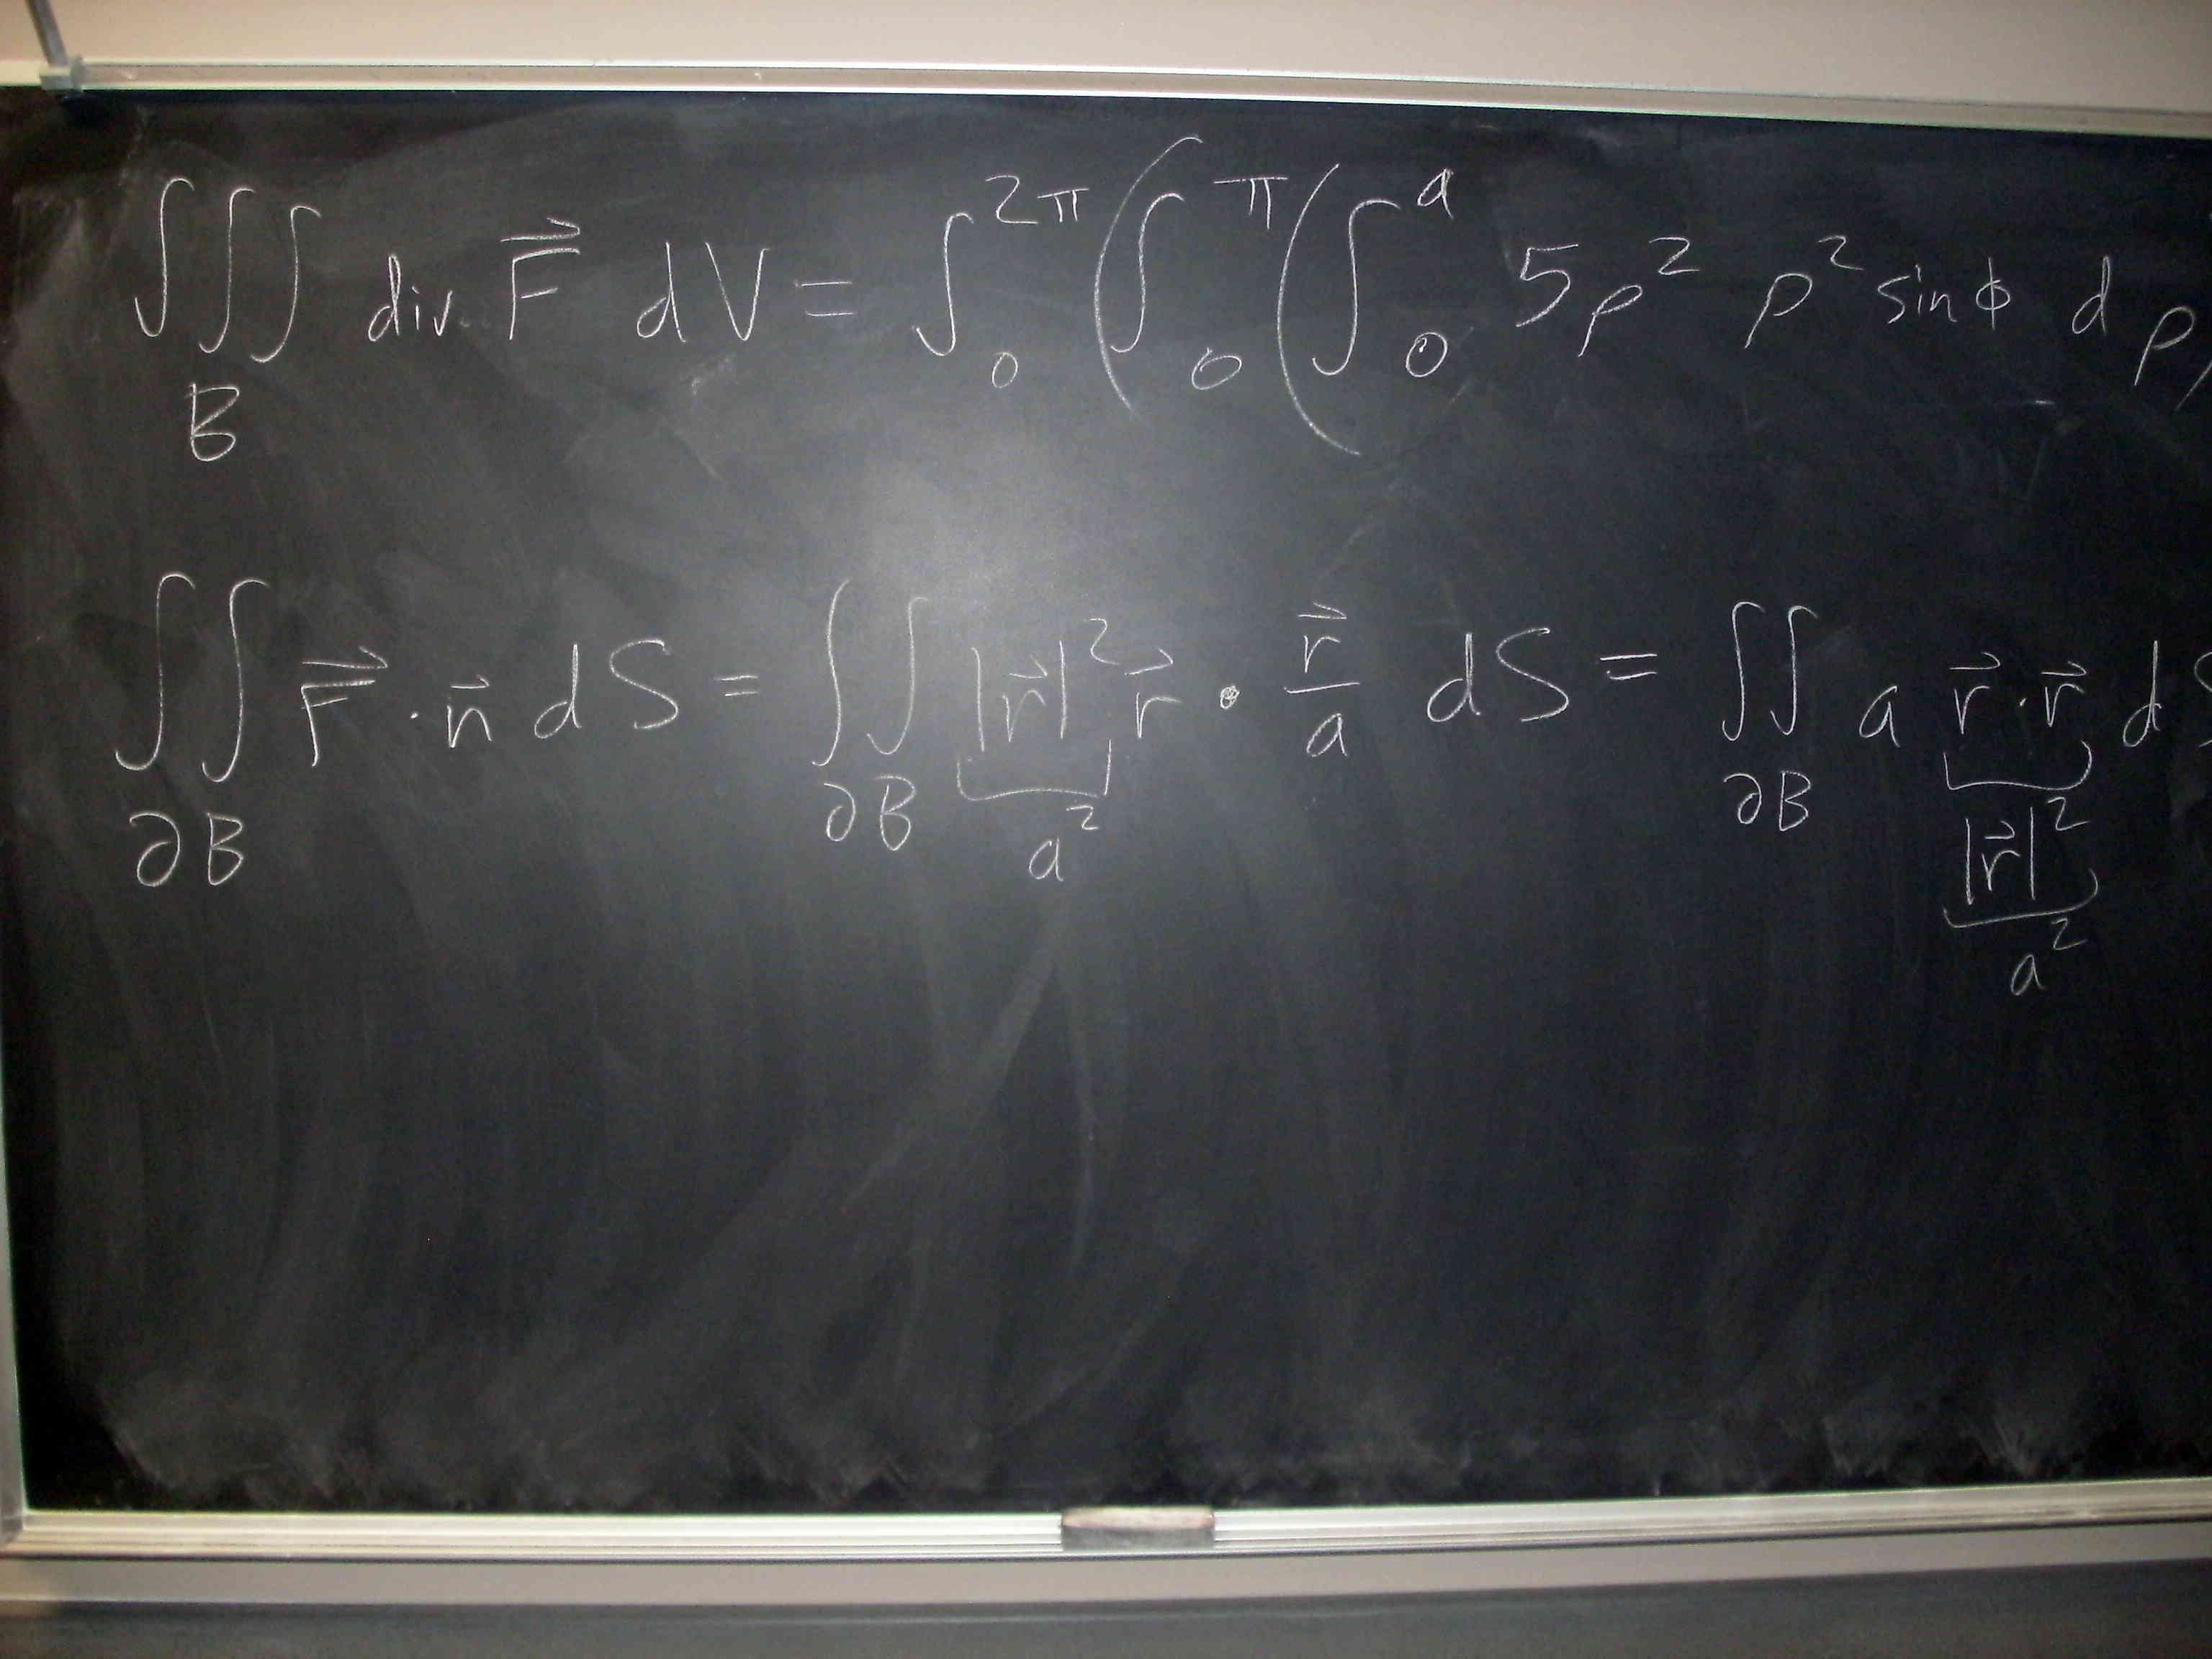 ∭_B div F⃗ dV = ∫_0^{2π} (∫_0^π (∫_0^a 5ρ² ρ² sinϕ dρ)
∬_{∂B} F⃗ · n⃗ dS = ∬_{∂B} |r⃗|² r⃗ · r⃗/a dS = ∬_{∂B} a r⃗ · r⃗ dS
a² |r⃗|²
a²